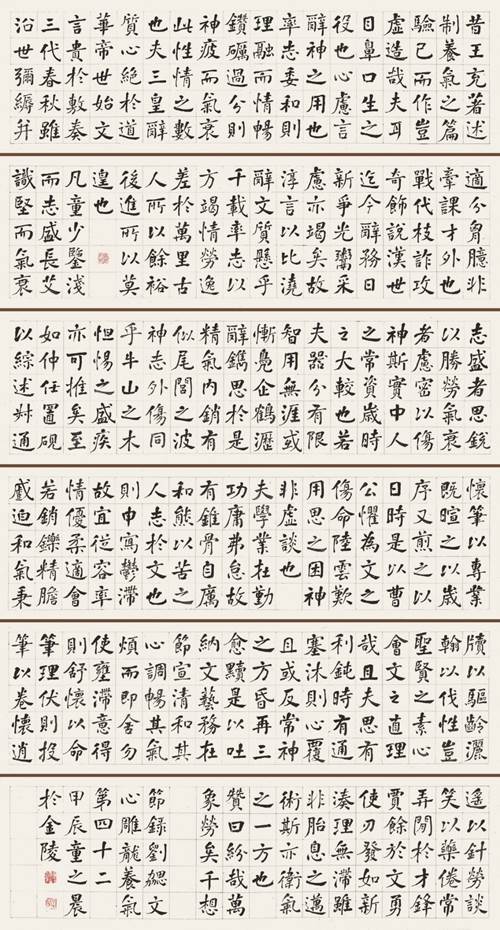 昔王充著述
制養氣之篇
驗已而作豈
虛造哉夫耳
目鼻口生之
役也心慮言
辭神之用也
率志委和則
理融而情暢
鑽礪過分則
神疲而氣衰
此性情之數
也夫三皇辭
質心絕於道
華帝世始文
言貴於敷奏
三代春秋雖
沿世彌縟并
適分胷臆非
牽課才外也
戰代枝詐攻
奇飾說漢世
迄今辭務日
新爭光鬻采
慮亦竭矣故
淳言以比澆
辭文質懸乎
千載率志以
方竭情勞逸
差於萬里古
人所以餘裕
後進所以莫
遑也
凡童少鑒淺
而志盛長艾
識堅而氣衰
志盛者思銳
以勝勞氣衰
者慮密以傷
神斯實中人
之常資歲時
之大較也若
夫器分有限
智用無涯或
慚鳧企鶴瀝
辭鐫思於是
精氣內銷有
似尾閭之波
神志外傷同
乎牛山之木
怛惕之盛疾
亦可推矣至
如仲任置硯
以綜述叔通
懷筆以專業
既暄之以歲
序又煎之以
日時是以曹
公懼為文之
傷命陸雲歎
用思之困神
非虛談也
夫學業在勤
功庸弗怠故
有錐骨自厲
和熊以苦之
人志於文也
則申寫鬱滯
故宜從容率
情優柔適會
若銷鑠精膽
蹙迫和氣秉
牘以驅齡灑
翰以伐性豈
聖賢之素心
會文之直理
哉且夫思有
利鈍時有通
塞沐則心覆
且或反常神
之方昏再三
愈黷是以吐
納文藝務在
節宣清和其
心調暢其氣
煩而即舍勿
使壅滯意得
則舒懷以命
筆理伏則投
筆以卷懷逍
遙以針勞談
笑以藥倦常
弄閑於才鋒
賈餘於文勇
使刃發如新
湊理無滯雖
非胎息之邁
術斯亦衛氣
之一方也
贊曰紛哉萬
象勞矣千想
節錄劉勰文
心雕龍養氣
第四十二
甲辰童之晨
於金陵